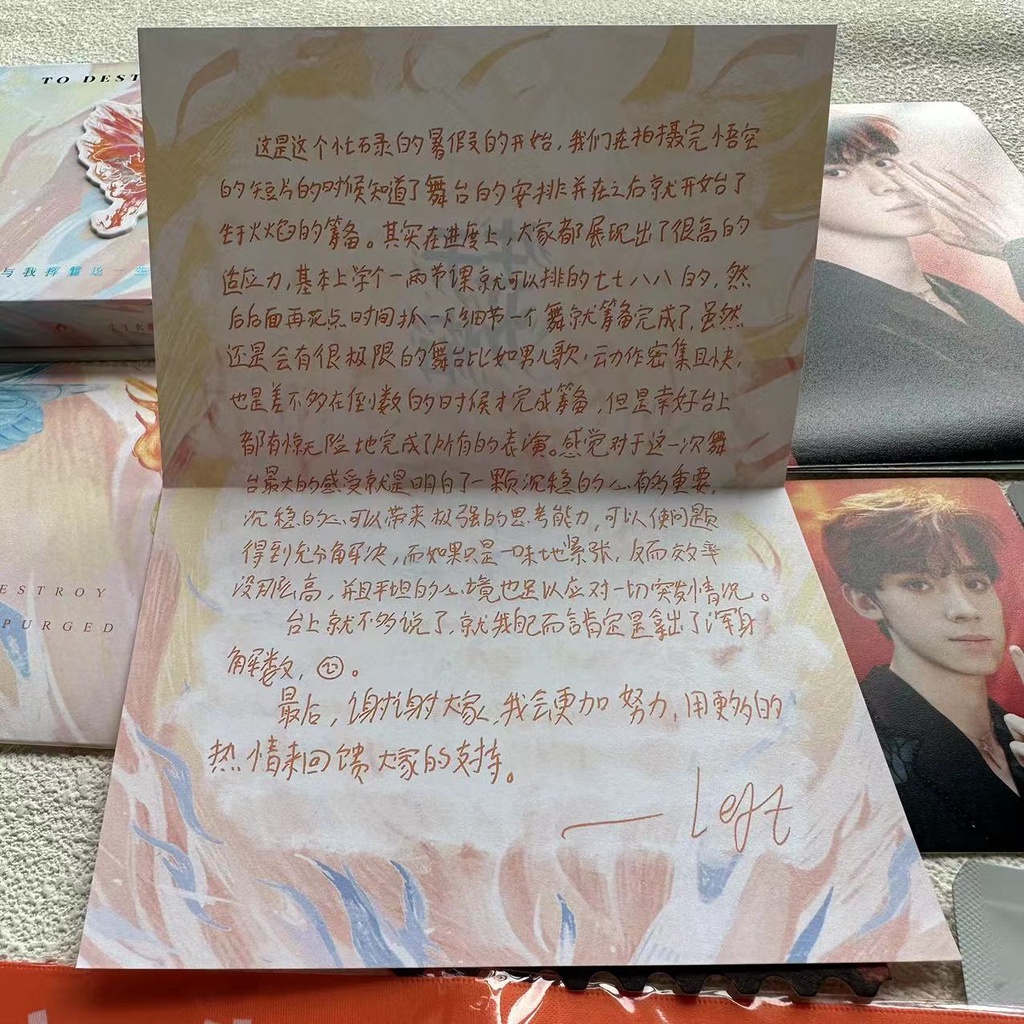 TO DEST
与我挥霍这一生
ESTROY
PURGED
这是这个忙碌的暑假的开始，我们在拍摄完悟空
的短片的时候知道了舞台的安排并在之后就开始了
生于火焰的筹备。其实在进度上，大家都展现出了很高的
适应力，基本上学个一两节课就可以排的七七八八的，然
后后面再花点时间抓一下细节一个舞就筹备完成了，虽然
还是会有很极限的舞台比如男儿歌，动作密集且快，
也是差不多在倒数的时候才完成筹备，但是幸好台上
都有惊无险地完成了所有的表演。感觉对于这一次舞
台最大的感受就是明白了一颗沉稳的心有多重要，
沉稳的心可以带来极强的思考能力，可以使问题
得到充分解决，而如果只是一味地紧张，反而效率
没那么高，并且平坦的心境也足以应对一切突发情况。
台上就不多说了，就我自己而言肯定是拿出了浑身
解数，。
最后，谢谢大家，我会更加努力，用更多的
热情来回馈大家的支持。
—— Left